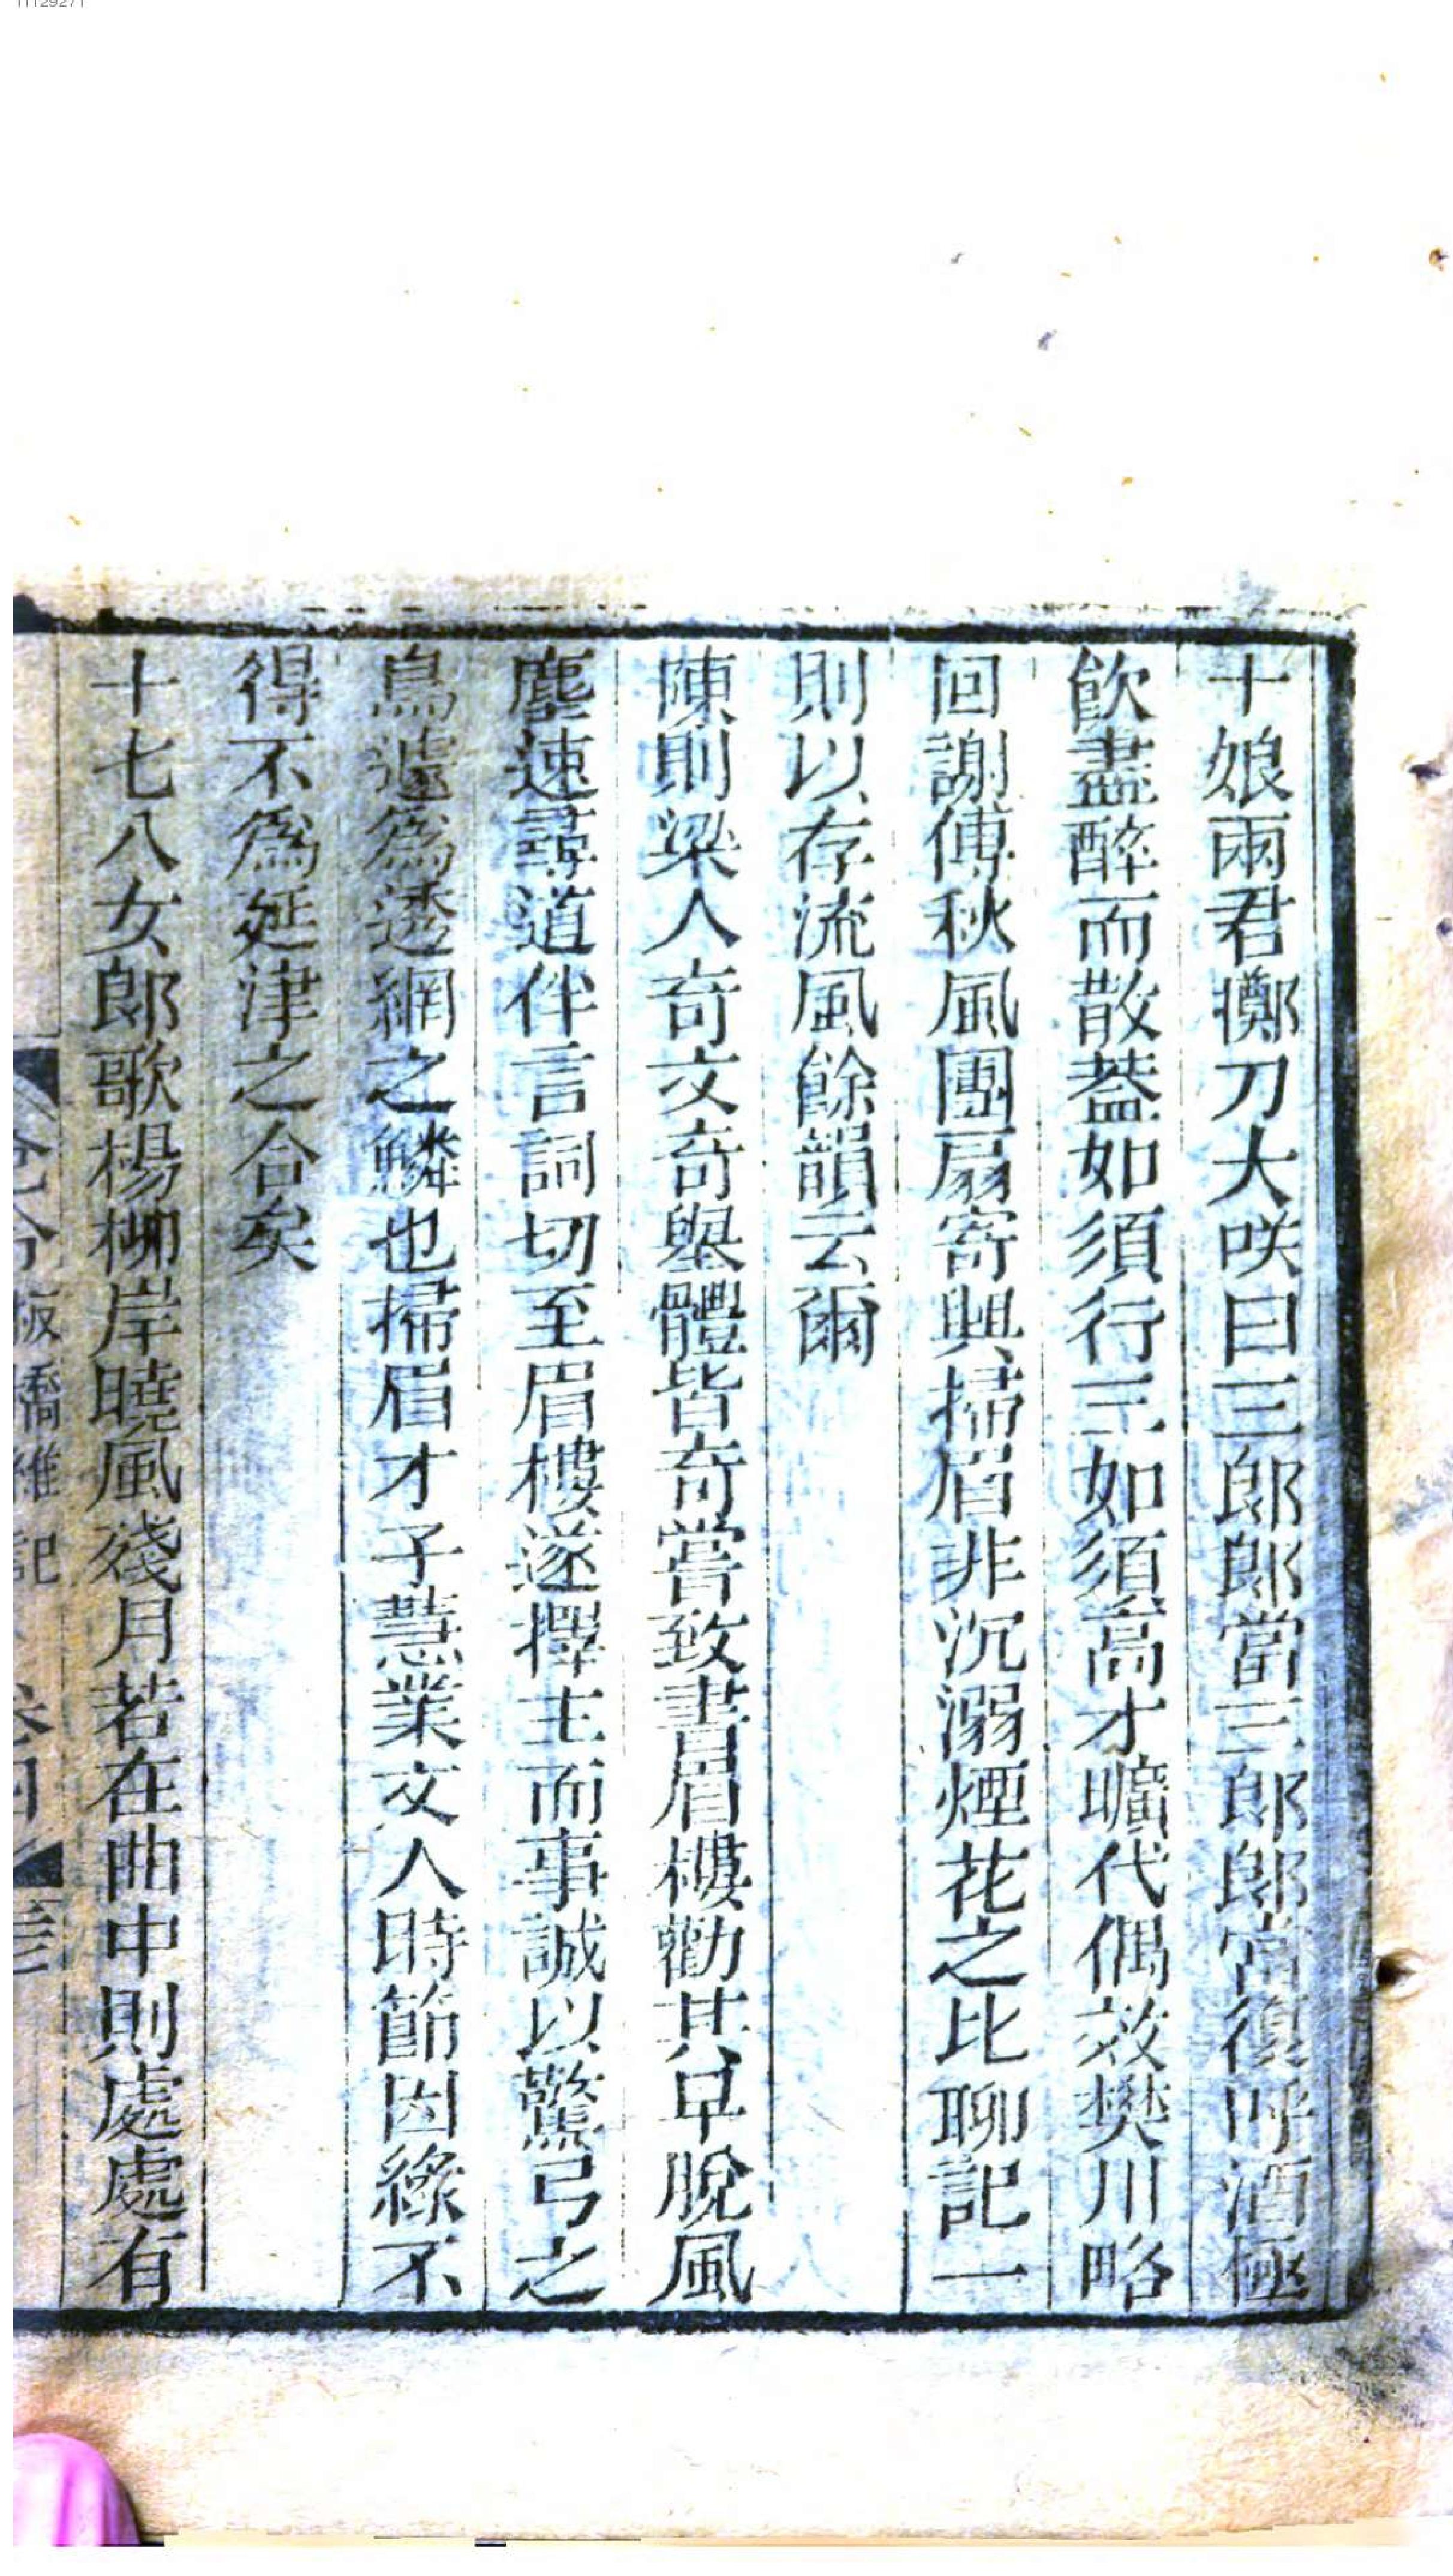 11129271
十娘雨君擲刀大咲曰三郎郎當三郎郎當復呼酒極
飲盡醉而散葢如須行三如須高才曠代偶效樊川略
同謝傅秋風團扇寄興掃眉非沉溺煙花之比聊記一
則以存流風餘韻云爾
陳則梁人奇文奇舉體皆奇嘗致書眉樓勸其早脫風
塵速尋道伴言詞切至眉樓遂擇主而事誠以驚弓之
鳥遽爲透網之鱗也掃眉才子慧業文人時節因緣不
得不爲延津之合矣
十七八女郎歌楊柳岸曉風殘月若在曲中則處處有
板橋雜記